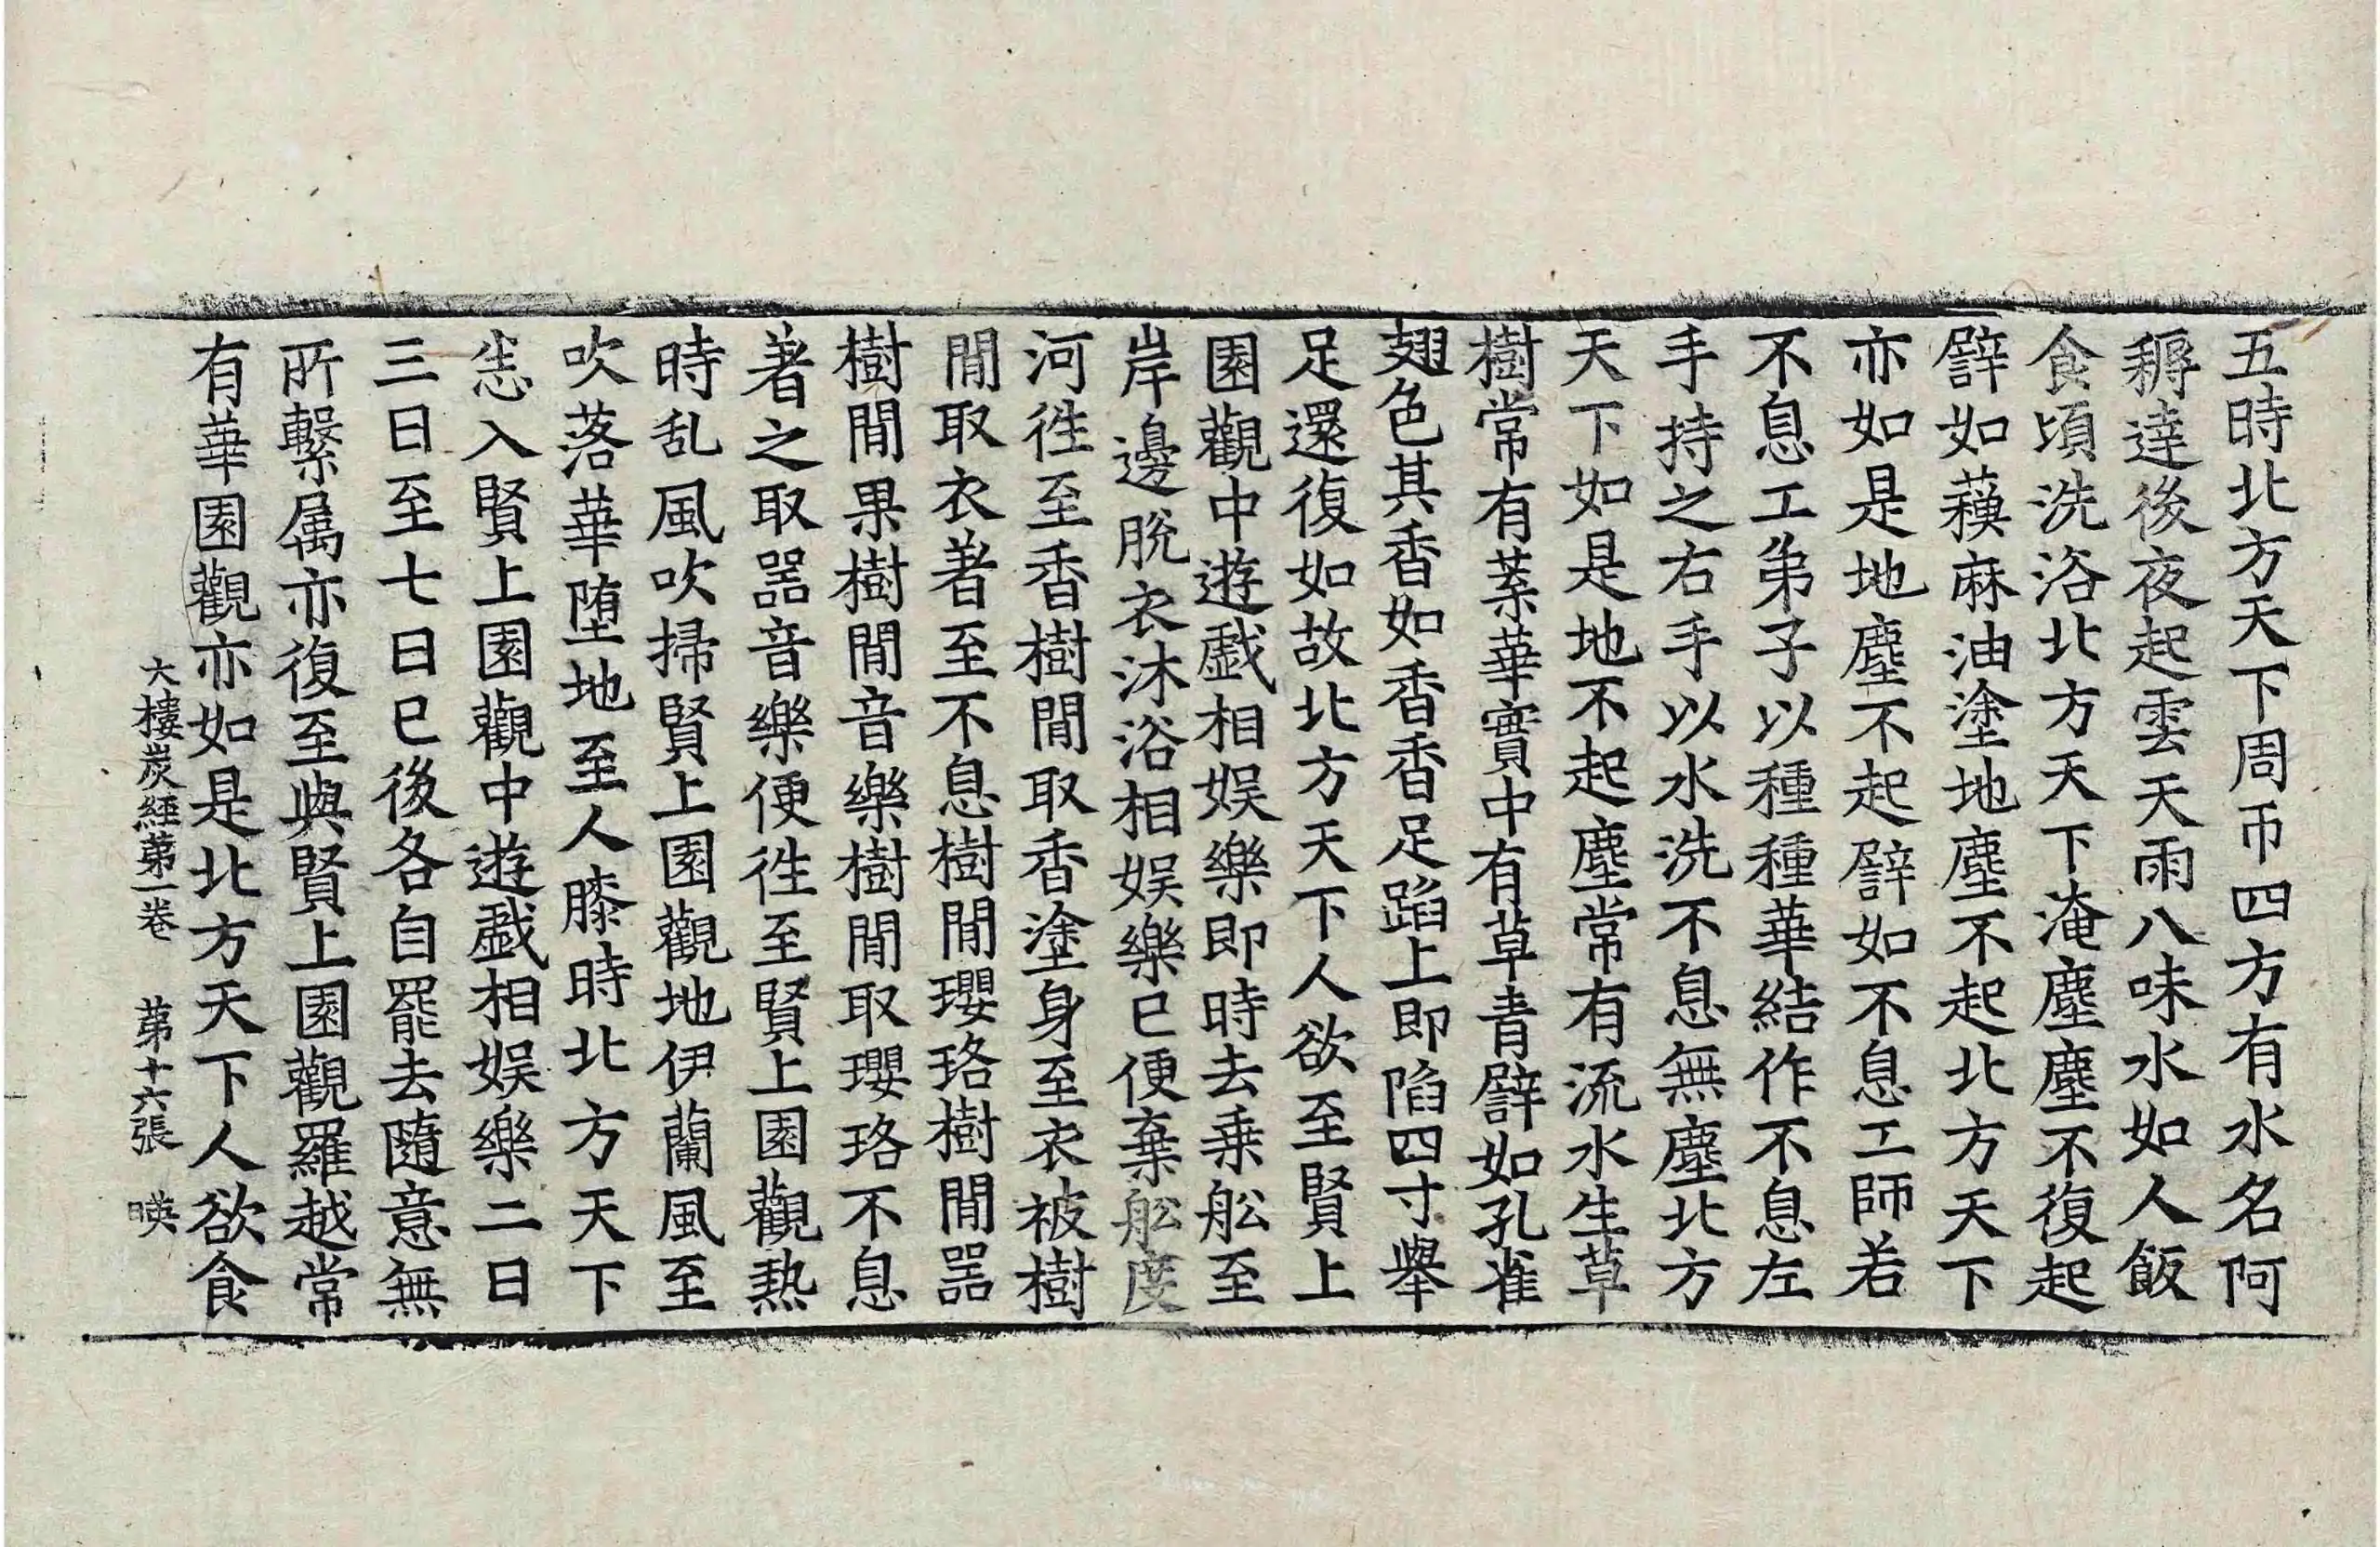 五時北方天下周帀四方有水名阿
耨達後夜起雲天雨八味水如人飯
食頃洗浴北方天下淹塵塵不復起
譬如𦾨麻油塗地塵不起北方天下
亦如是地塵不起譬如不息工師若
不息工弟子以種種華結作不息左
手持之右手以水洗不息無塵北方
天下如是地不起塵常有流水生草
樹常有葉華實中有草青譬如孔雀
翅色其香如香香足蹈上即陷四寸舉
足還復如故北方天下人欲至賢上
園觀中遊戲相娛樂即時去乗舩至
岸邊脫衣沐浴相娛樂已便棄舩度
河徃至香樹閒取香塗身至衣被樹
閒取衣著至不息樹閒瓔珞樹閒噐
樹閒果樹閒音樂樹閒取瓔珞不息
著之取噐音樂便徃至賢上園觀熱
時乱風吹掃賢上園觀地伊蘭風至
吹落華墮地至人膝時北方天下
恣入賢上園觀中遊戲相娛樂二日
三日至七日已後各自罷去隨意無
所繫属亦復至與賢上園觀羅越常
有華園觀亦如是北方天下人欲食
大樓炭經第一卷 第十六張 暎